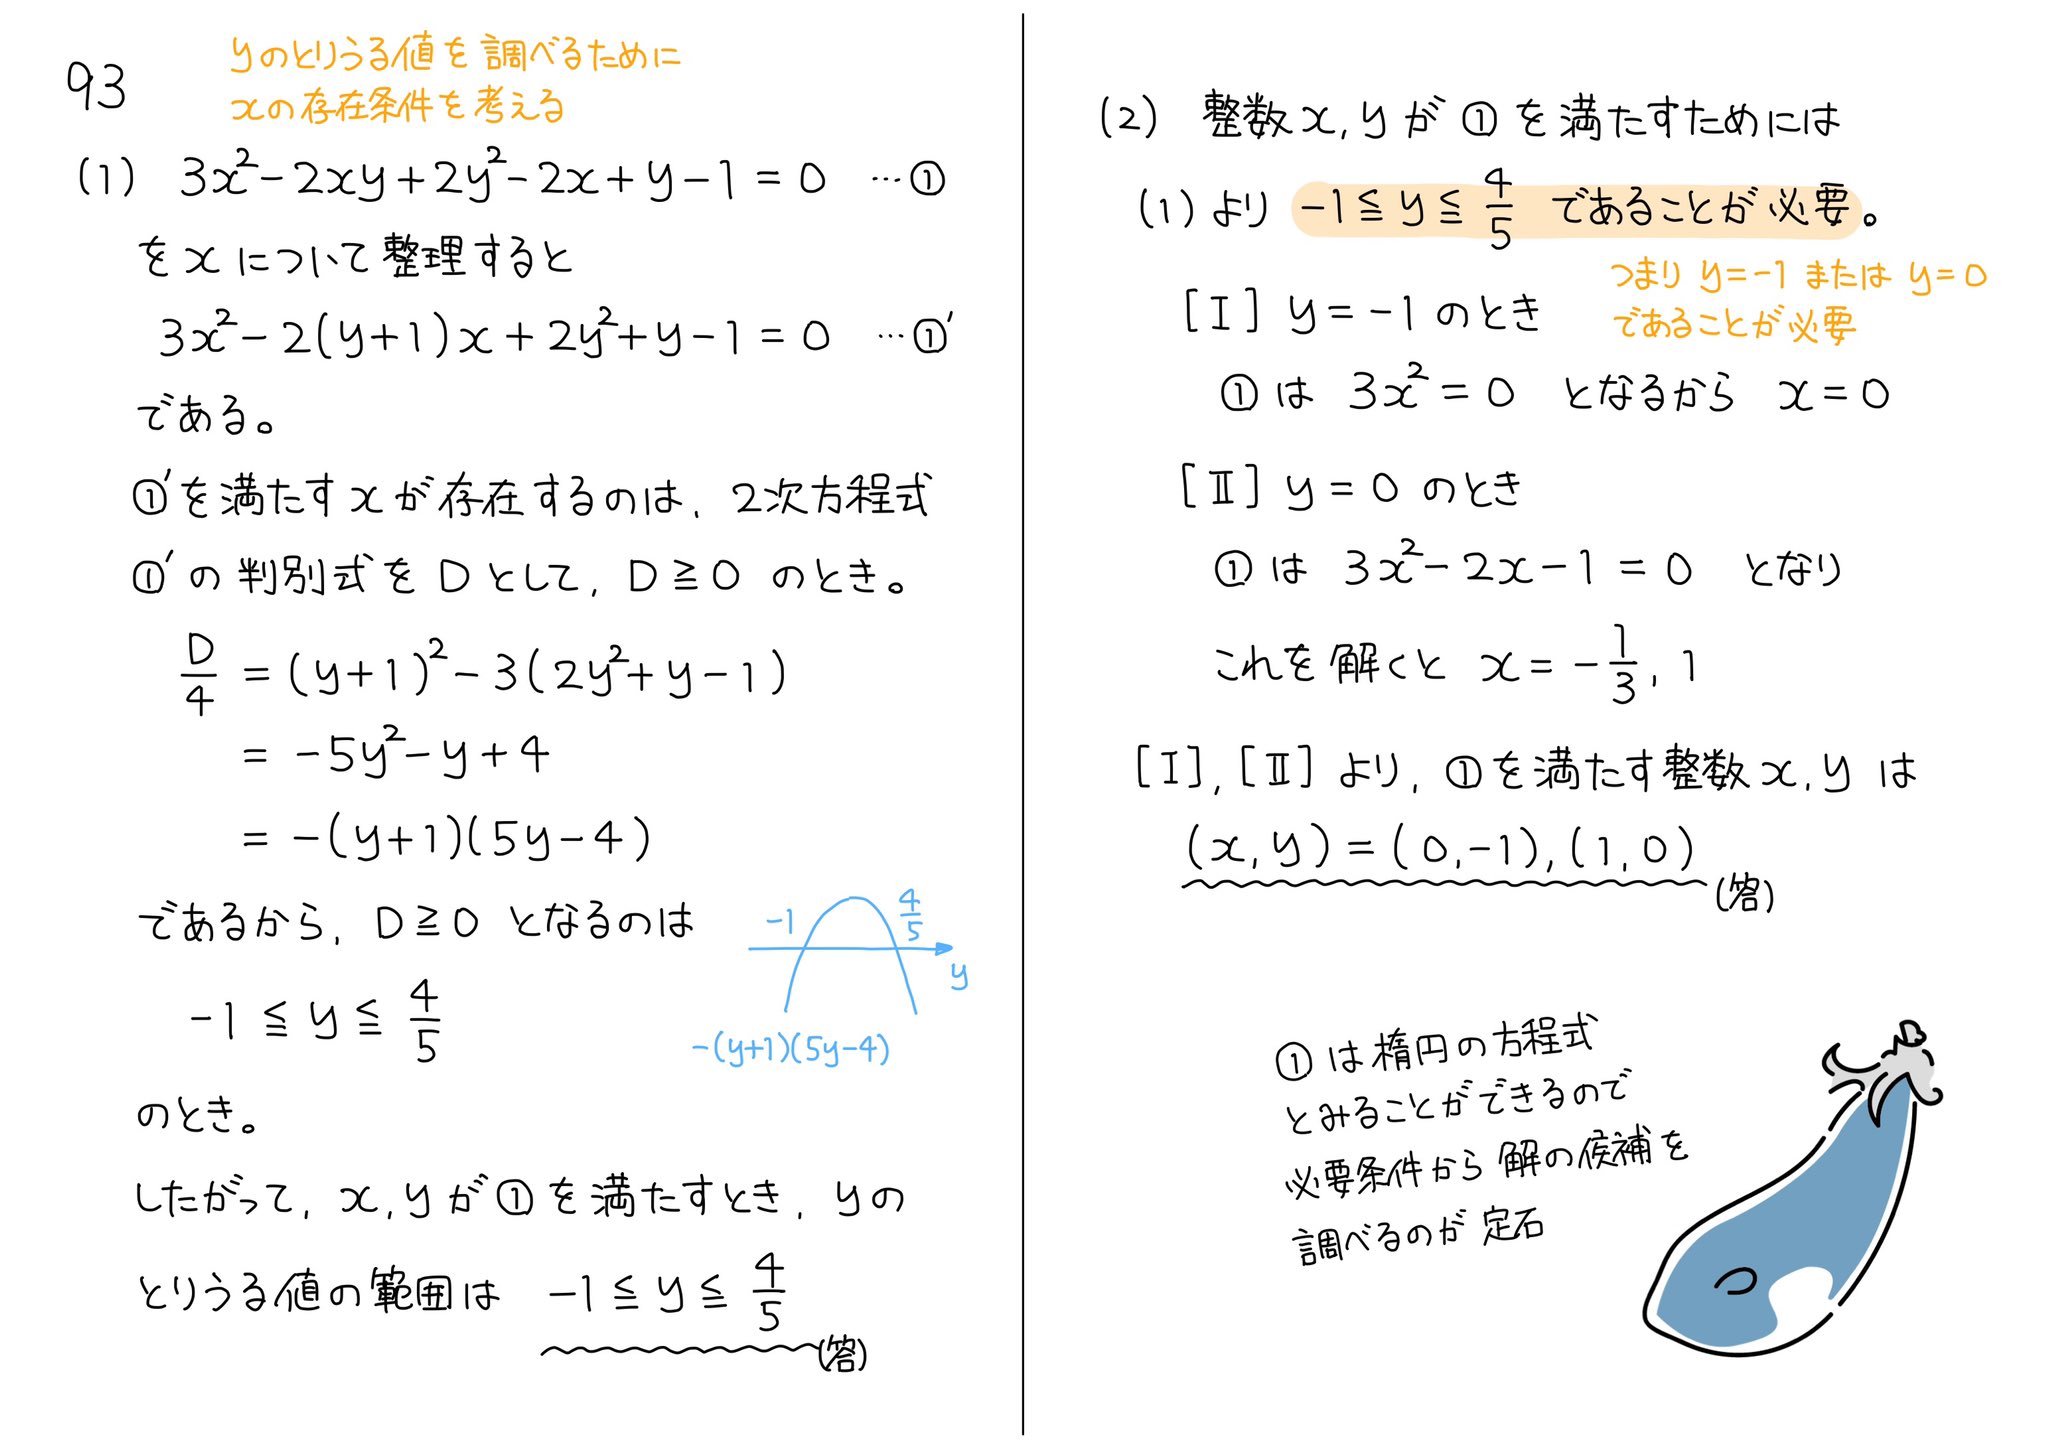 93
yのとりうる値を調べるために
xの存在条件を考える
(1) 3x²-2xy+2y²-2x+y-1=0 …①
をxについて整理すると
3x²-2(y+1)x+2y²+y-1=0 …①′
である。
①′を満たすxが存在するのは, 2次方程式
①′の判別式をDとして, D≧0 のとき。
D/4 = (y+1)²-3(2y²+y-1)
= -5y²-y+4
= -(y+1)(5y-4)
であるから, D≧0 となるのは
-1≦y≦4/5
-1 4/5
y
-(y+1)(5y-4)
のとき。
したがって, x,yが①を満たすとき, yの
とりうる値の範囲は -1≦y≦4/5
(答)
(2) 整数x,yが①を満たすためには
(1)より -1≦y≦4/5 であることが必要。
つまり y=-1 または y=0
であることが必要
[I] y=-1 のとき
①は 3x²=0 となるから x=0
[II] y=0 のとき
①は 3x²-2x-1=0 となり
これを解くと x=-1/3, 1
[I],[II]より, ①を満たす整数x,yは
(x,y)=(0,-1),(1,0)
(答)
①は楕円の方程式
とみることができるので
必要条件から解の候補を
調べるのが定石